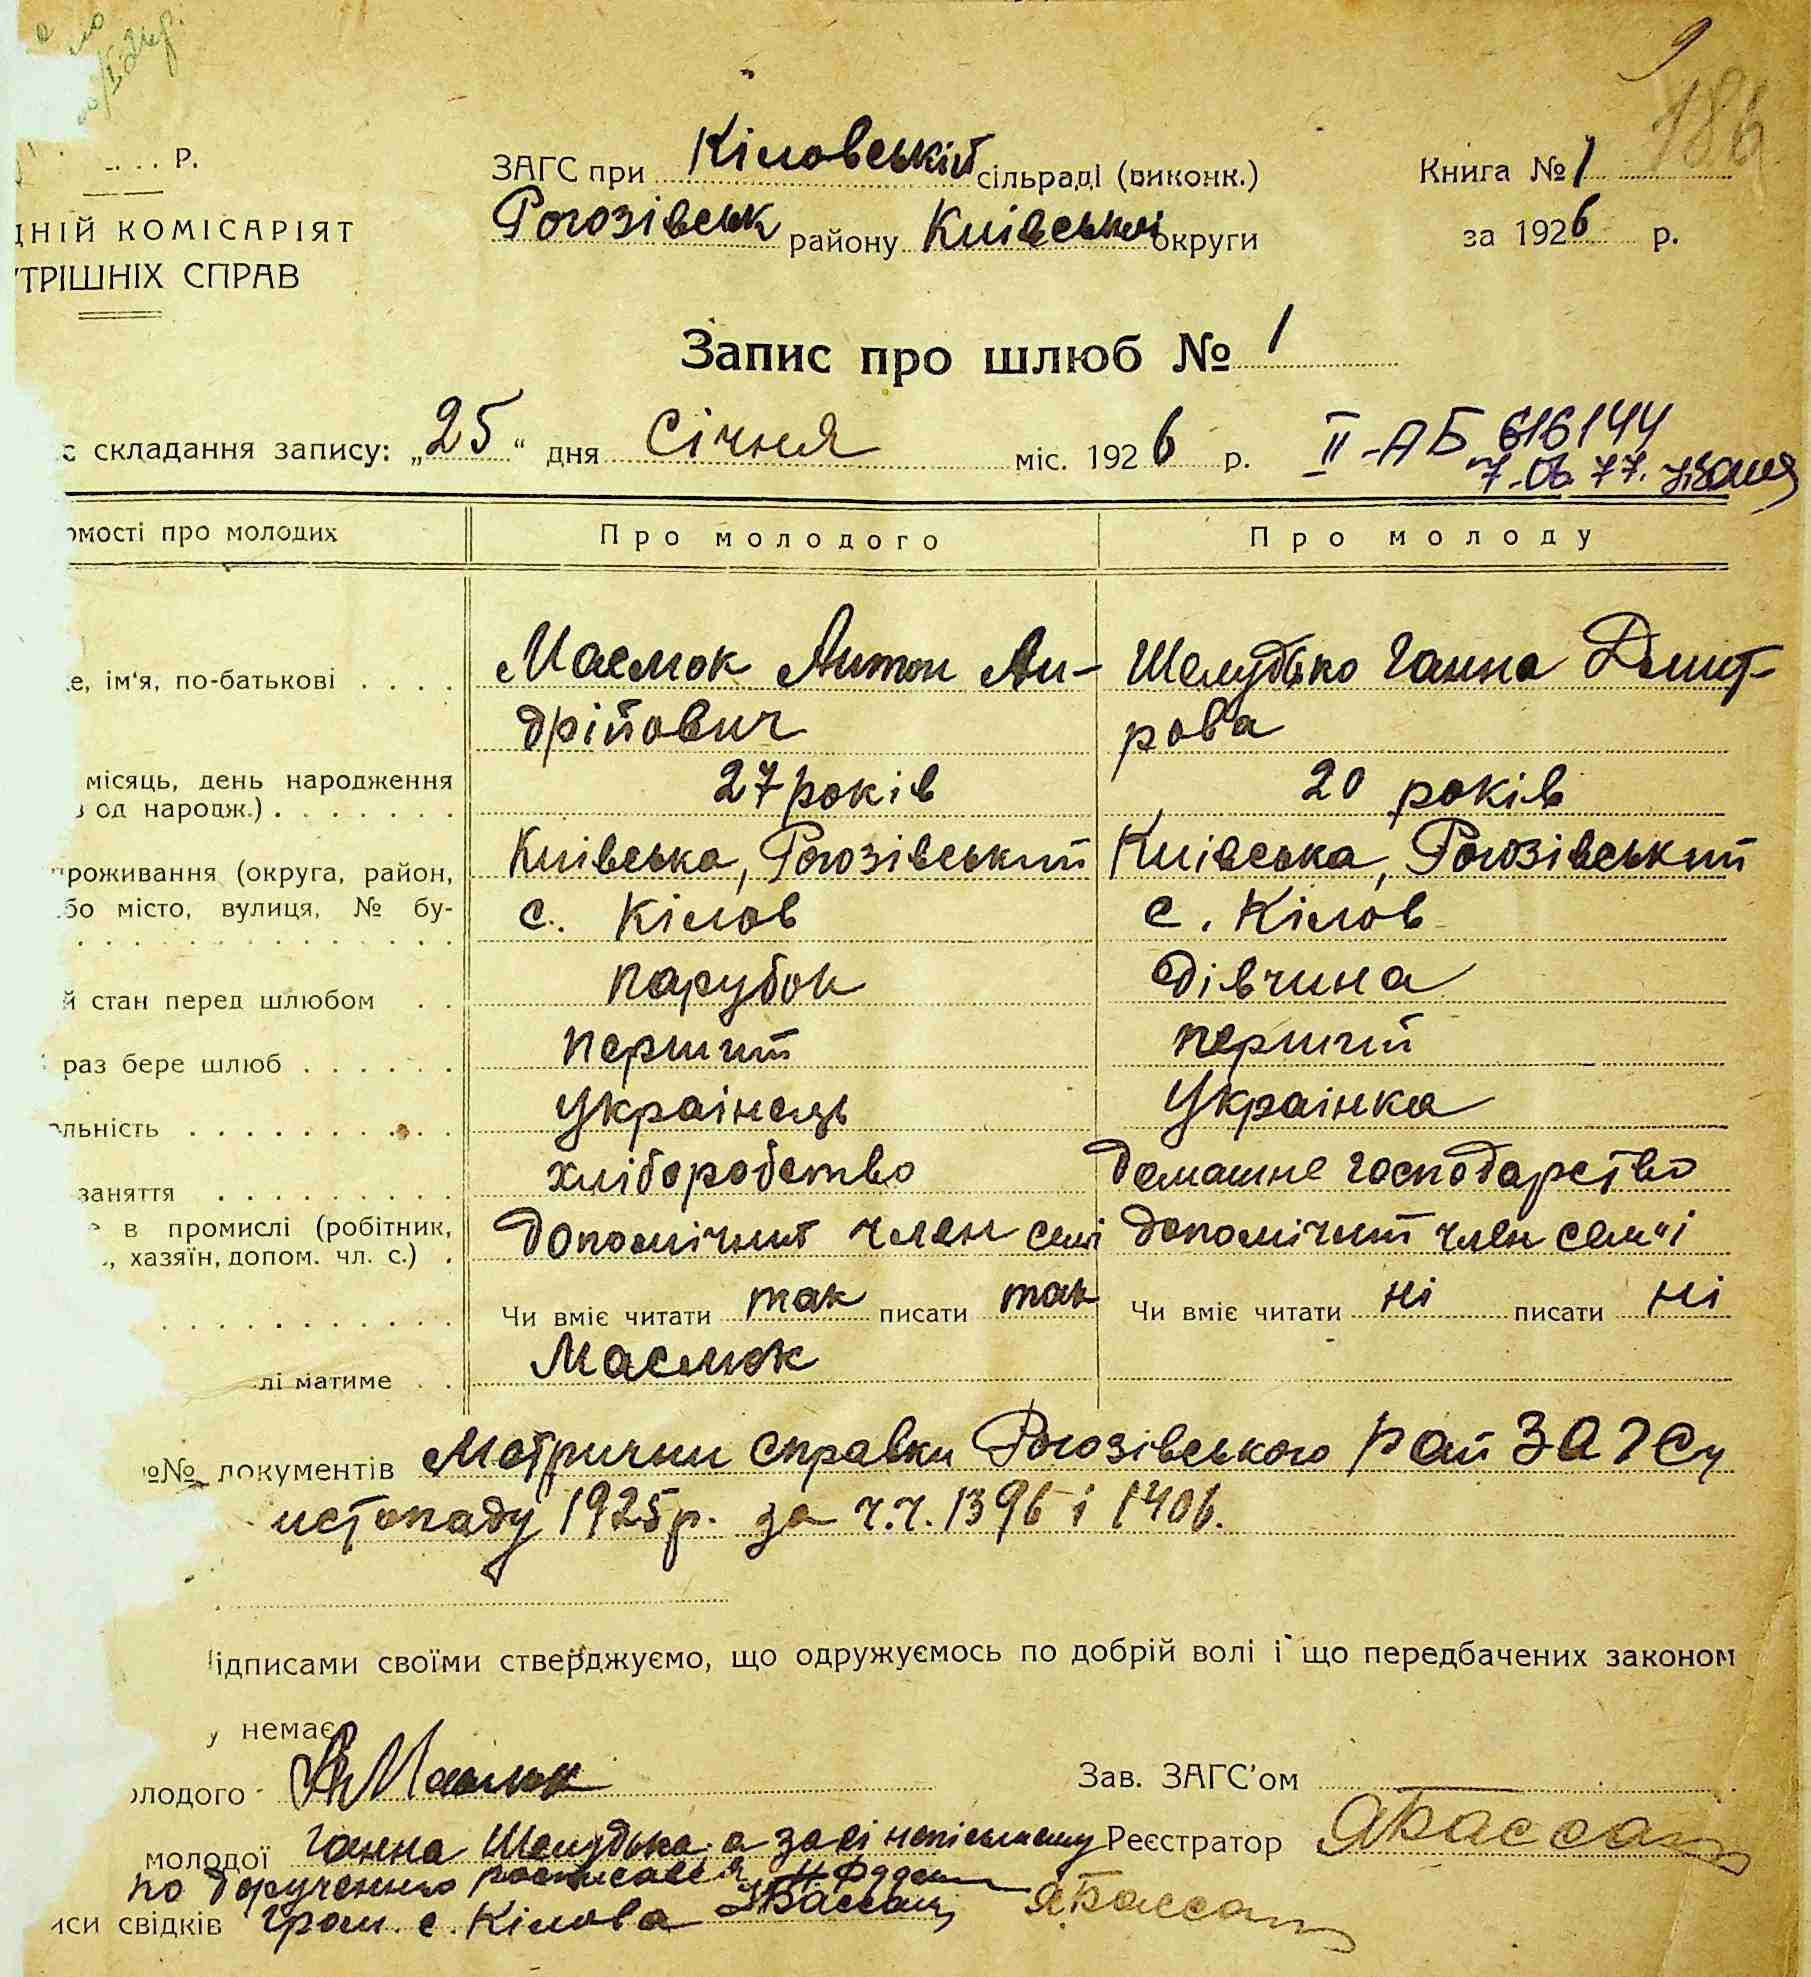 186
р.
ЗАГС при Кіловській сільраді (виконк.) Книга № 1
Рогозівськ району Київської округи за 1926 р.
ДНІЙ КОМІСАРІЯТ
ТРІШНІХ СПРАВ
Запис про шлюб № 1
с складання запису: „25“ дня Січня міс. 1926 р. II-АБ 616144
7.06.77.
омості про молодих Про молодого Про молоду
е, ім'я, по-батькові Маслюк Антон Ан- Шелудько Ганна Дмит-
дрійович рова
місяць, день народження
од народж.) 27 років 20 років
роживання (округа, район, Київська, Рогозівський Київська, Рогозівський
бо місто, вулиця, № бу- с. Кілов с. Кілов
й стан перед шлюбом парубок дівчина
раз бере шлюб перший перший
льність Украінець Украінка
заняття хліборобство домашнє господарство
в промислі (робітник,
хазяїн, допом. чл. с.) допомічний член семі допомічний член сем"і
Чи вміє читати так писати так Чи вміє читати ні писати ні
лі матиме Маслюк
№№ документів Метричні справки Рогозівського Рай ЗАГСу
истопаду 1925р. за ч.ч. 1396 і 1406.
ідписами своїми стверджуємо, що одружуємось по добрій волі і що передбачених законом
у немає
олодого АМаслюк Зав. ЗАГС'ом
молодої Ганна Шелудько а за еі неписьмену Реєстратор ЯБасса
по дорученню росписався
иси свідків Гром. с. Кілова